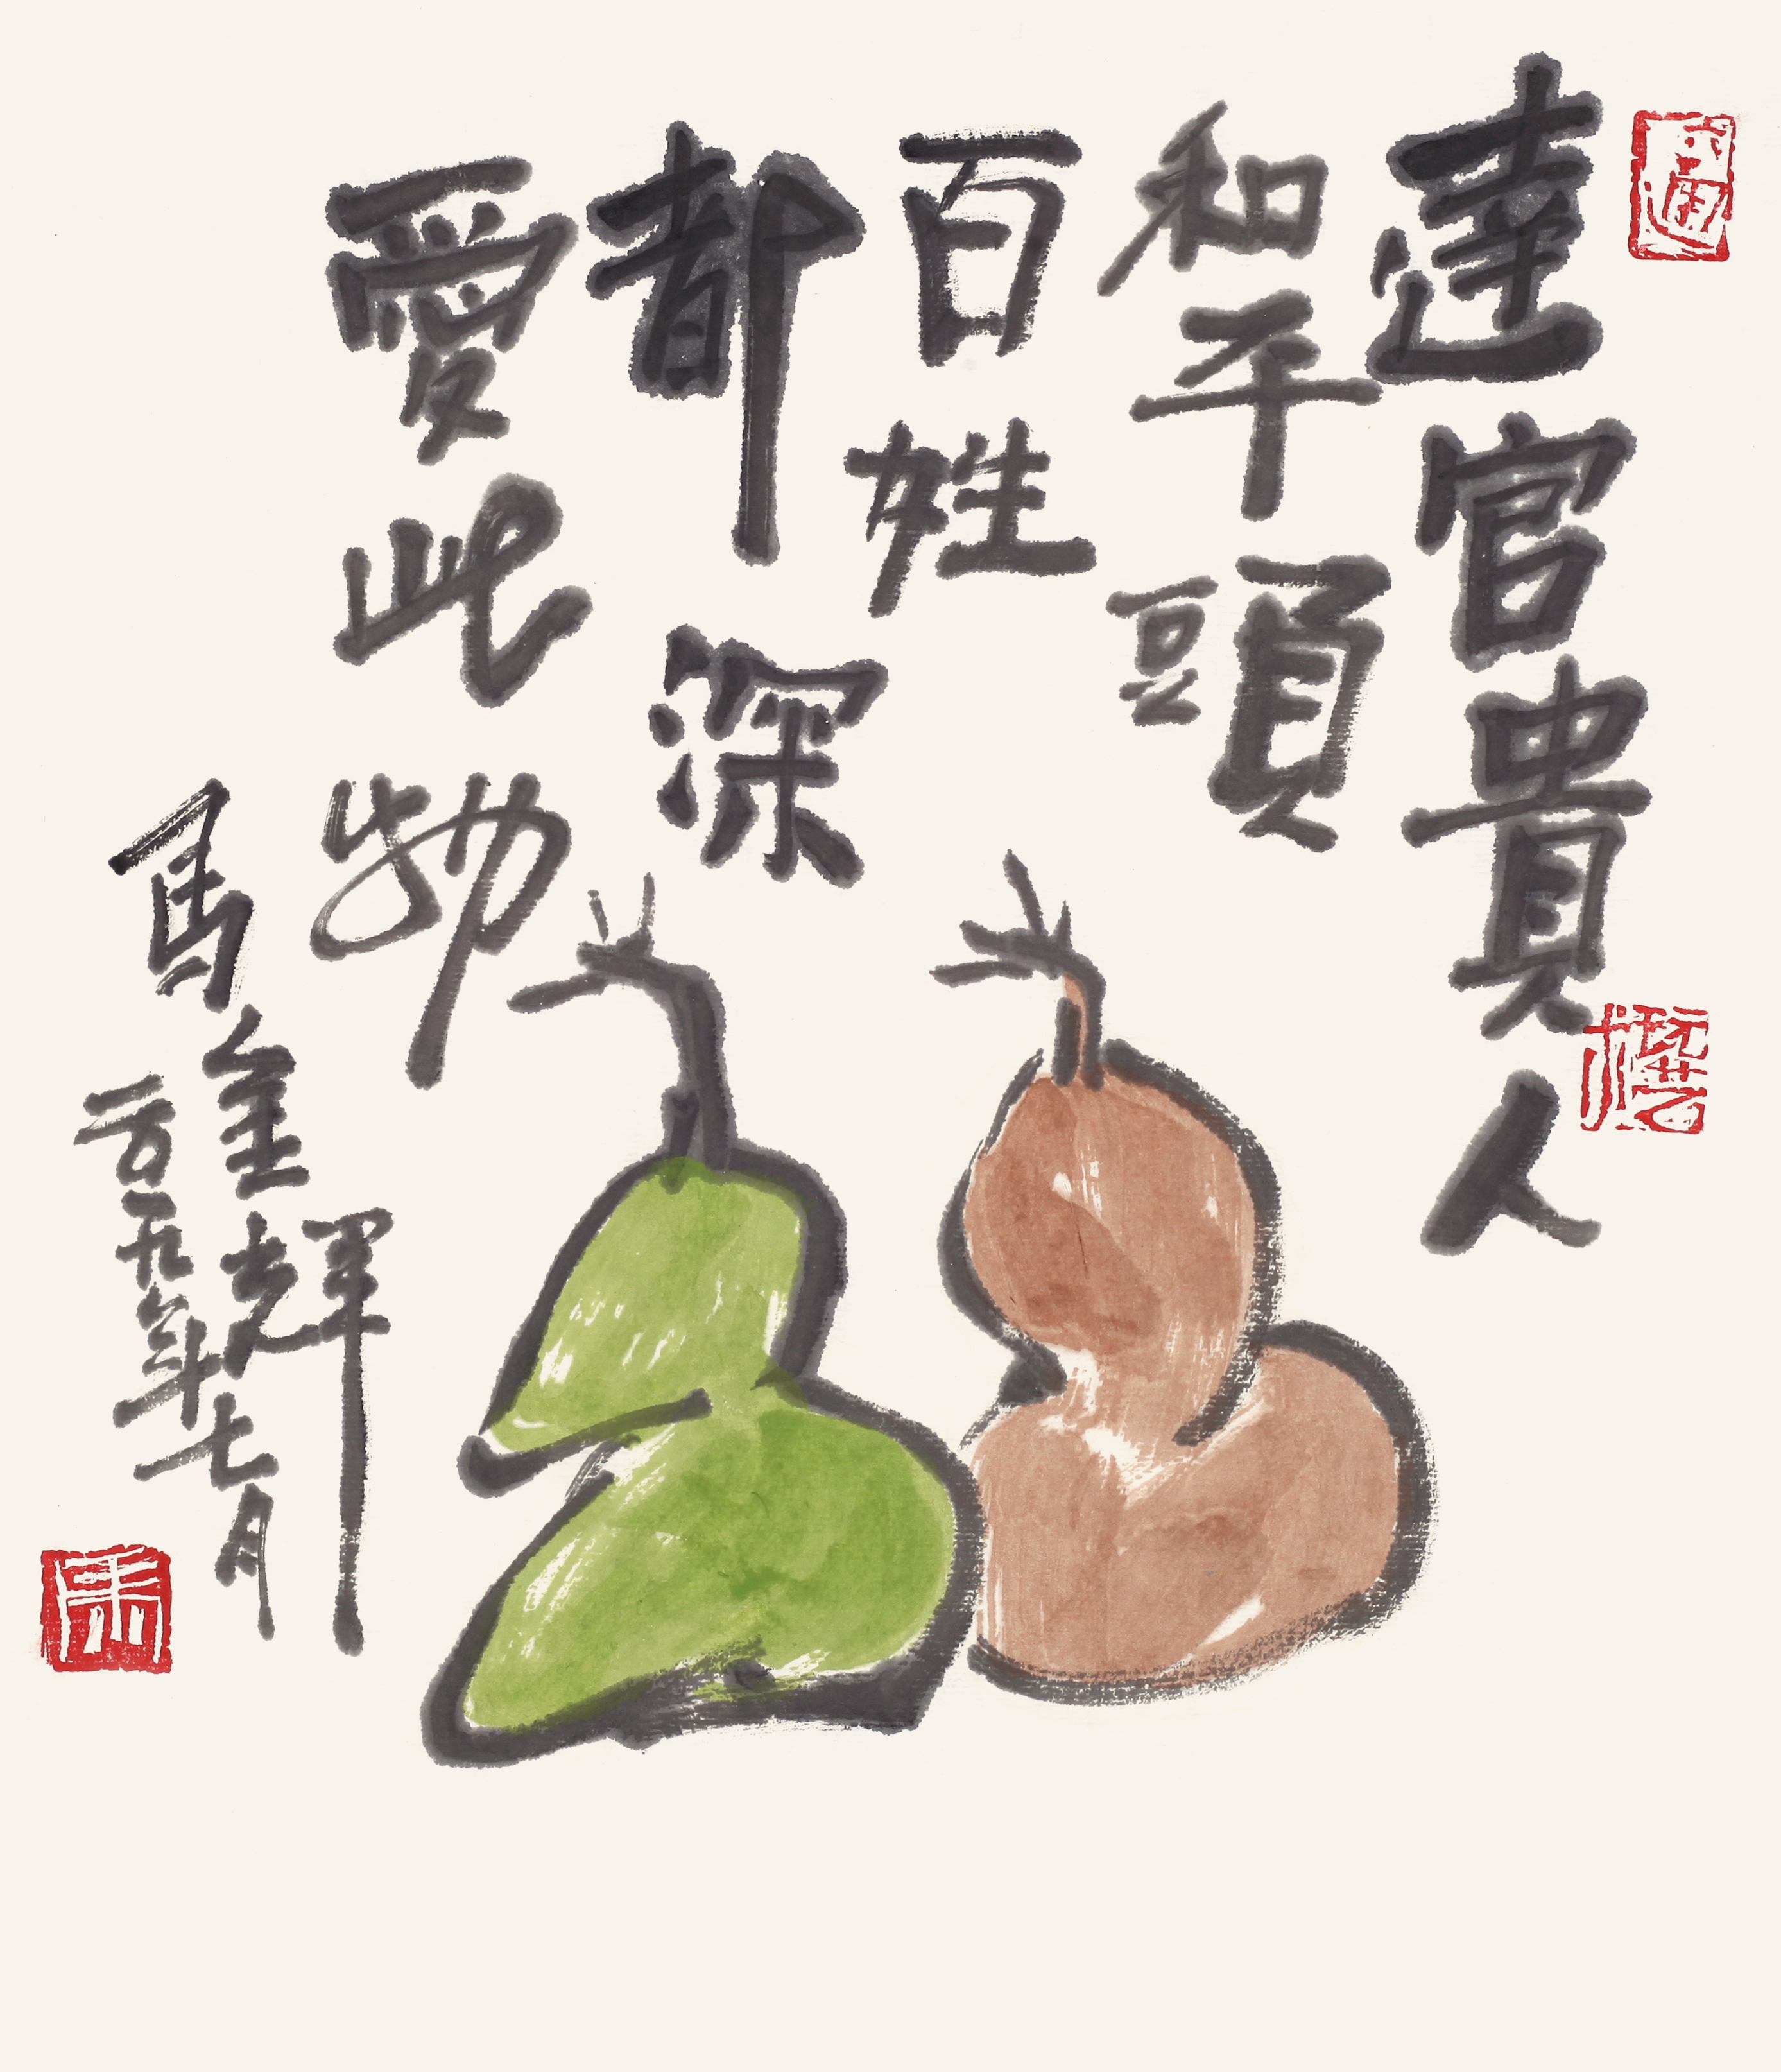 達官貴人
和平頭
百姓
都深
愛此物
馬金輝
二〇一九年七月